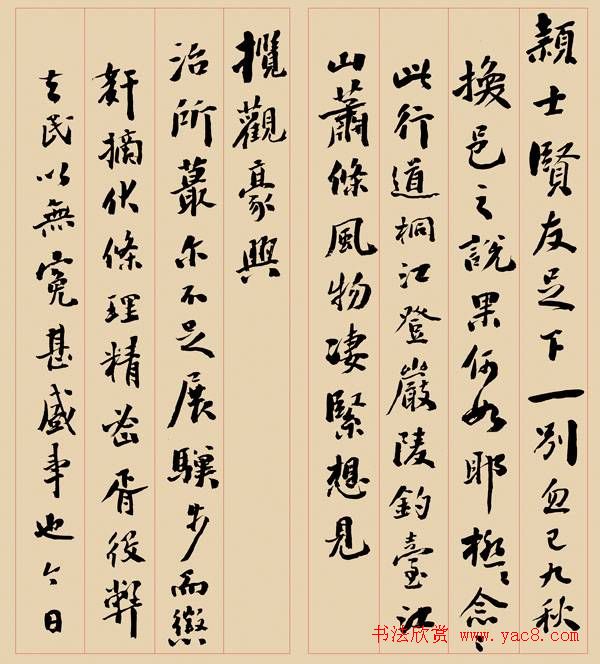 頴士賢友足下一別忽已九秋
換邑之說果何如耶極〻念〻
此行道桐江登嚴陵釣臺江
山蕭條風物凄緊想見
攬觀豪興
治所蕞尔不足展驥步而懲
奸摘伏條理精密胥役弊
去民以無冤甚盛事也今日
书法欣赏 www.yac8.com